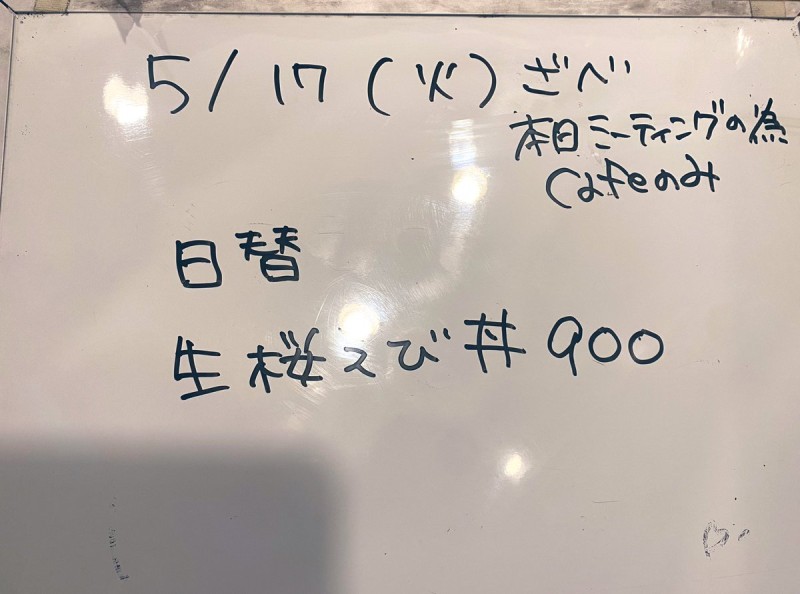 5/17(火)ざべ
本日ミーティングの為
Cafeのみ
日替
生桜えび丼 900